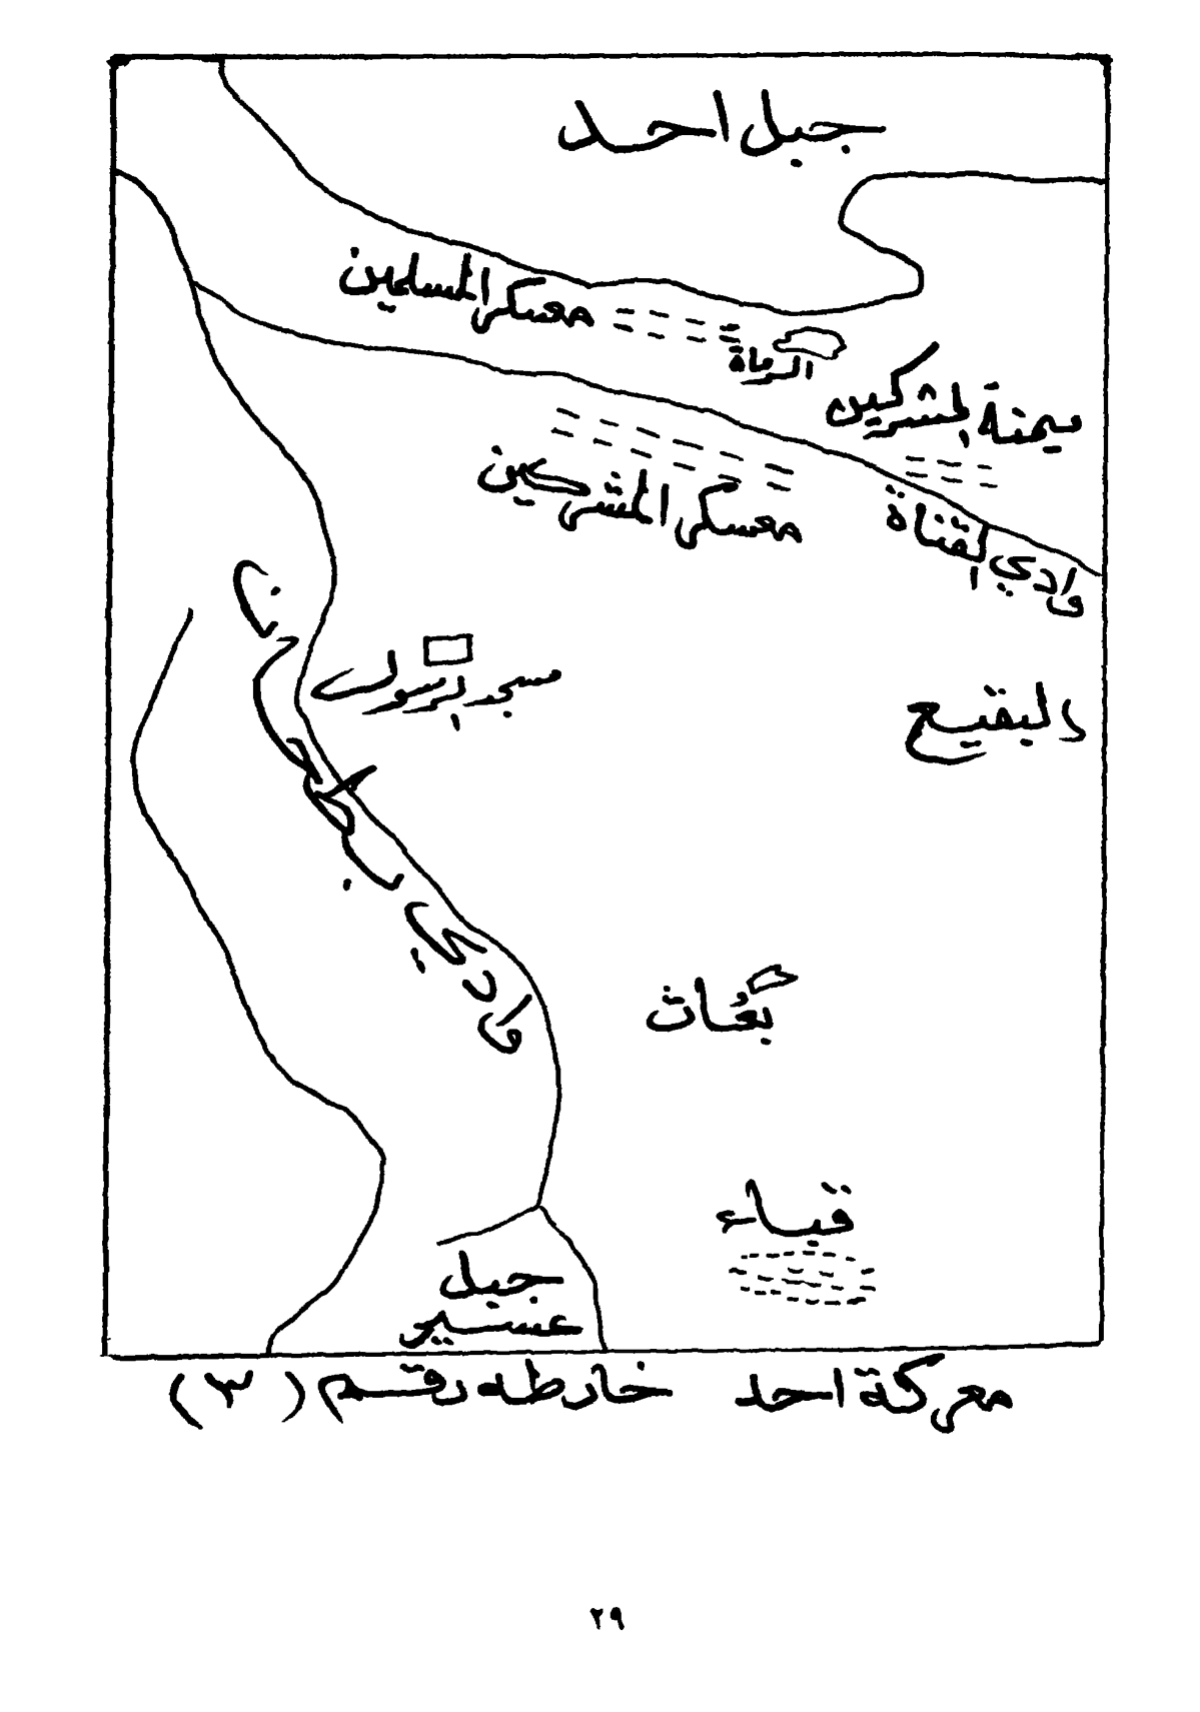 جبل احد
معسكر المسلمين
الرماة
ميمنة المشركين
معسكر المشركين
وادي القناة
مسجد الرسول
البقيع
وادي بطحان
بُعاث
قباء
جبل
عسير
معركة احد خارطه رقم (٣)
٢٩